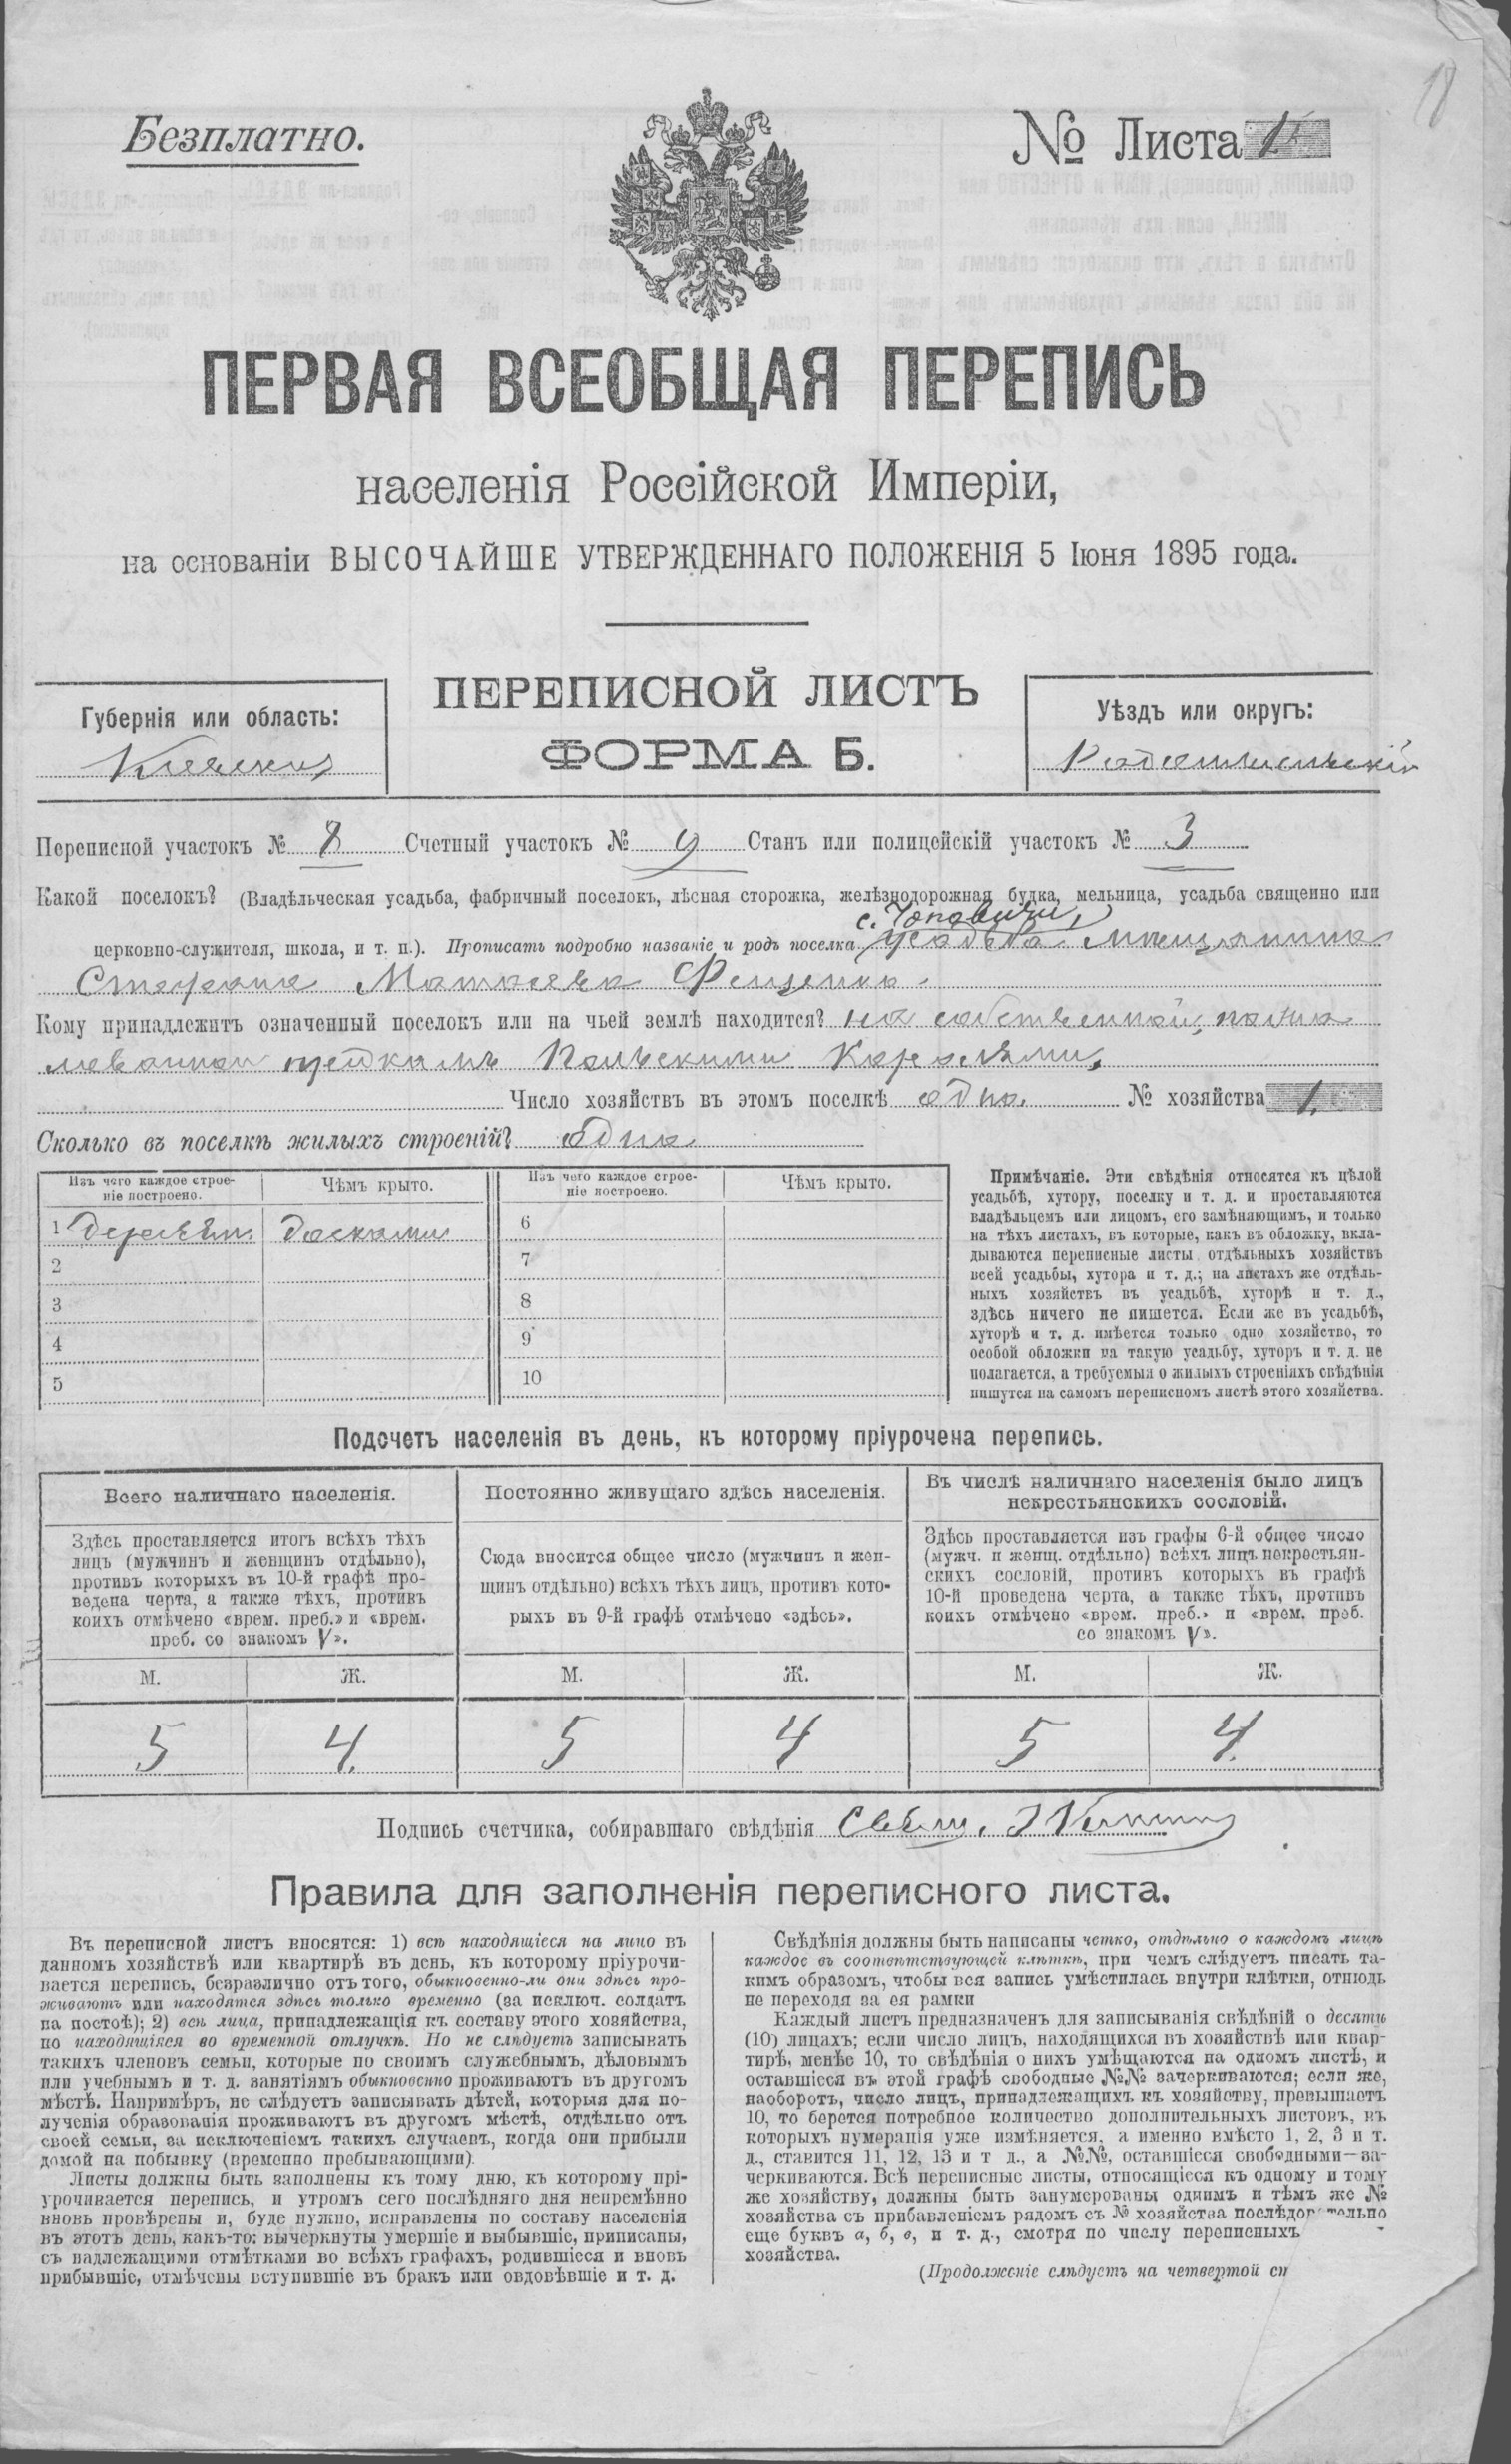 18
Безплатно.
№ Листа 1
ПЕРВАЯ ВСЕОБЩАЯ ПЕРЕПИСЬ
населенія Россійской Имперіи,
на основаніи ВЫСОЧАЙШЕ УТВЕРЖДЕННАГО ПОЛОЖЕНІЯ 5 Іюня 1895 года.
ПЕРЕПИСНОЙ ЛИСТЪ
ФОРМА Б.
Губернія или область:
Кіевская
Уѣздъ или округъ:
Радомысльскій
Переписной участокъ № 8 Счетный участокъ № 9 Станъ или полицейскій участокъ № 3
Какой поселокъ? (Владѣльческая усадьба, фабричный поселокъ, лѣсная сторожка, желѣзнодорожная будка, мельница, усадьба священно или
с. Чоповичи,
церковно-служителя, школа, и т. п.). Прописать подробно названіе и родъ поселка усадьба мѣщанина
Стефана Матвеева Фещенко.
Кому принадлежитъ означенный поселокъ или на чьей землѣ находится? на собственной,
предкамъ Польскими Королями.
Число хозяйствъ въ этомъ поселкѣ одно. № хозяйства 1.
Сколько въ поселкѣ жилыхъ строеній? одно
Изъ чего каждое строе-
ніе построено.
Чѣмъ крыто.
Изъ чего каждое строе-
ніе построено.
Чѣмъ крыто.
1 Деревян. досками
2
3
4
5
6
7
8
9
10
Примѣчаніе. Эти свѣдѣнія относятся къ цѣлой
усадьбѣ, хутору, поселку и т. д. и проставляются
владѣльцемъ или лицомъ, его замѣняющимъ, и только
на тѣхъ листахъ, въ которые, какъ въ обложку, вкла-
дываются переписные листы отдѣльныхъ хозяйствъ
всей усадьбы, хутора и т. д.; на листахъ же отдѣль-
ныхъ хозяйствъ въ усадьбѣ, хуторѣ и т. д.,
здѣсь ничего не пишется. Если же въ усадьбѣ,
хуторѣ и т. д. имѣется только одно хозяйство, то
особой обложки на такую усадьбу, хуторъ и т. д. не
полагается, а требуемыя о жилыхъ строеніяхъ свѣдѣнія
пишутся на самомъ переписномъ листѣ этого хозяйства.
Подсчетъ населенія въ день, къ которому пріурочена перепись.
Всего наличнаго населенія.
Здѣсь проставляется итогъ всѣхъ тѣхъ
лицъ (мужчинъ и женщинъ отдѣльно),
противъ которыхъ въ 10-й графѣ про-
ведена черта, а также тѣхъ, противъ
коихъ отмѣчено «врем. преб.» и «врем.
преб. со знакомъ V».
М. Ж.
5 4.
Постоянно живущаго здѣсь населенія.
Сюда вносится общее число (мужчинъ и жен-
щинъ отдѣльно) всѣхъ тѣхъ лицъ, противъ кото-
рыхъ въ 9-й графѣ отмѣчено «здѣсь».
М. Ж.
5 4
Въ числѣ наличнаго населенія было лицъ
некрестьянскихъ сословій.
Здѣсь проставляется изъ графы 6-й общее число
(мужч. и женщ. отдѣльно) всѣхъ лицъ некрестьян-
скихъ сословій, противъ которыхъ въ графѣ
10-й проведена черта, а также тѣхъ, противъ
коихъ отмѣчено «врем. преб.» и «врем. преб.
со знакомъ V».
М. Ж.
5 4.
Подпись счетчика, собиравшаго свѣдѣнія
Правила для заполненія переписного листа.
Въ переписной листъ вносятся: 1) всѣ находящіеся на лицо въ
данномъ хозяйствѣ или квартирѣ въ день, къ которому пріурочи-
вается перепись, безразлично отъ того, обыкновенно-ли они здѣсь про-
живаютъ или находятся здѣсь только временно (за исключ. солдатъ
на постоѣ); 2) всѣ лица, принадлежащія къ составу этого хозяйства,
но находящіяся во временной отлучкѣ. Но не слѣдуетъ записывать
такихъ членовъ семьи, которые по своимъ служебнымъ, дѣловымъ
или учебнымъ и т. д. занятіямъ обыкновенно проживаютъ въ другомъ
мѣстѣ. Напримѣръ, не слѣдуетъ записывать дѣтей, которыя для по-
лученія образованія проживаютъ въ другомъ мѣстѣ, отдѣльно отъ
своей семьи, за исключеніемъ такихъ случаевъ, когда они прибыли
домой на побывку (временно пребывающими).
Листы должны быть заполнены къ тому дню, къ которому прі-
урочивается перепись, и утромъ сего послѣдняго дня непремѣнно
вновь провѣрены и, буде нужно, исправлены по составу населенія
въ этотъ день, какъ-то: вычеркнуты умершіе и выбывшіе, приписаны,
съ надлежащими отмѣтками во всѣхъ графахъ, родившіеся и вновь
прибывшіе, отмѣчены вступившіе въ бракъ или овдовѣвшіе и т. д.
Свѣдѣнія должны быть написаны четко, отдѣльно о каждомъ лицѣ
каждое въ соотвѣтствующей клѣткѣ, при чемъ слѣдуетъ писать та-
кимъ образомъ, чтобы вся запись умѣстилась внутри клѣтки, отнюдь
не переходя за ея рамки
Каждый листъ предназначенъ для записыванія свѣдѣній о десяти
(10) лицахъ; если число лицъ, находящихся въ хозяйствѣ или квар-
тирѣ, менѣе 10, то свѣдѣнія о нихъ умѣщаются на одномъ листѣ, и
оставшіеся въ этой графѣ свободные №№ зачеркиваются; если же,
наоборотъ, число лицъ, принадлежащихъ къ хозяйству, превышаетъ
10, то берется потребное количество дополнительныхъ листовъ, въ
которыхъ нумерація уже измѣняется, а именно вмѣсто 1, 2, 3 и т.
д., ставится 11, 12, 13 и т д., а №№, оставшіеся свободными—за-
черкиваются. Всѣ переписные листы, относящіеся къ одному и тому
же хозяйству, должны быть занумерованы однимъ и тѣмъ же №
хозяйства съ прибавленіемъ рядомъ съ № хозяйства послѣдовательно
еще буквъ а, б, в, и т. д., смотря по числу переписныхъ
хозяйства.
(Продолженіе слѣдуетъ на четвертой ст